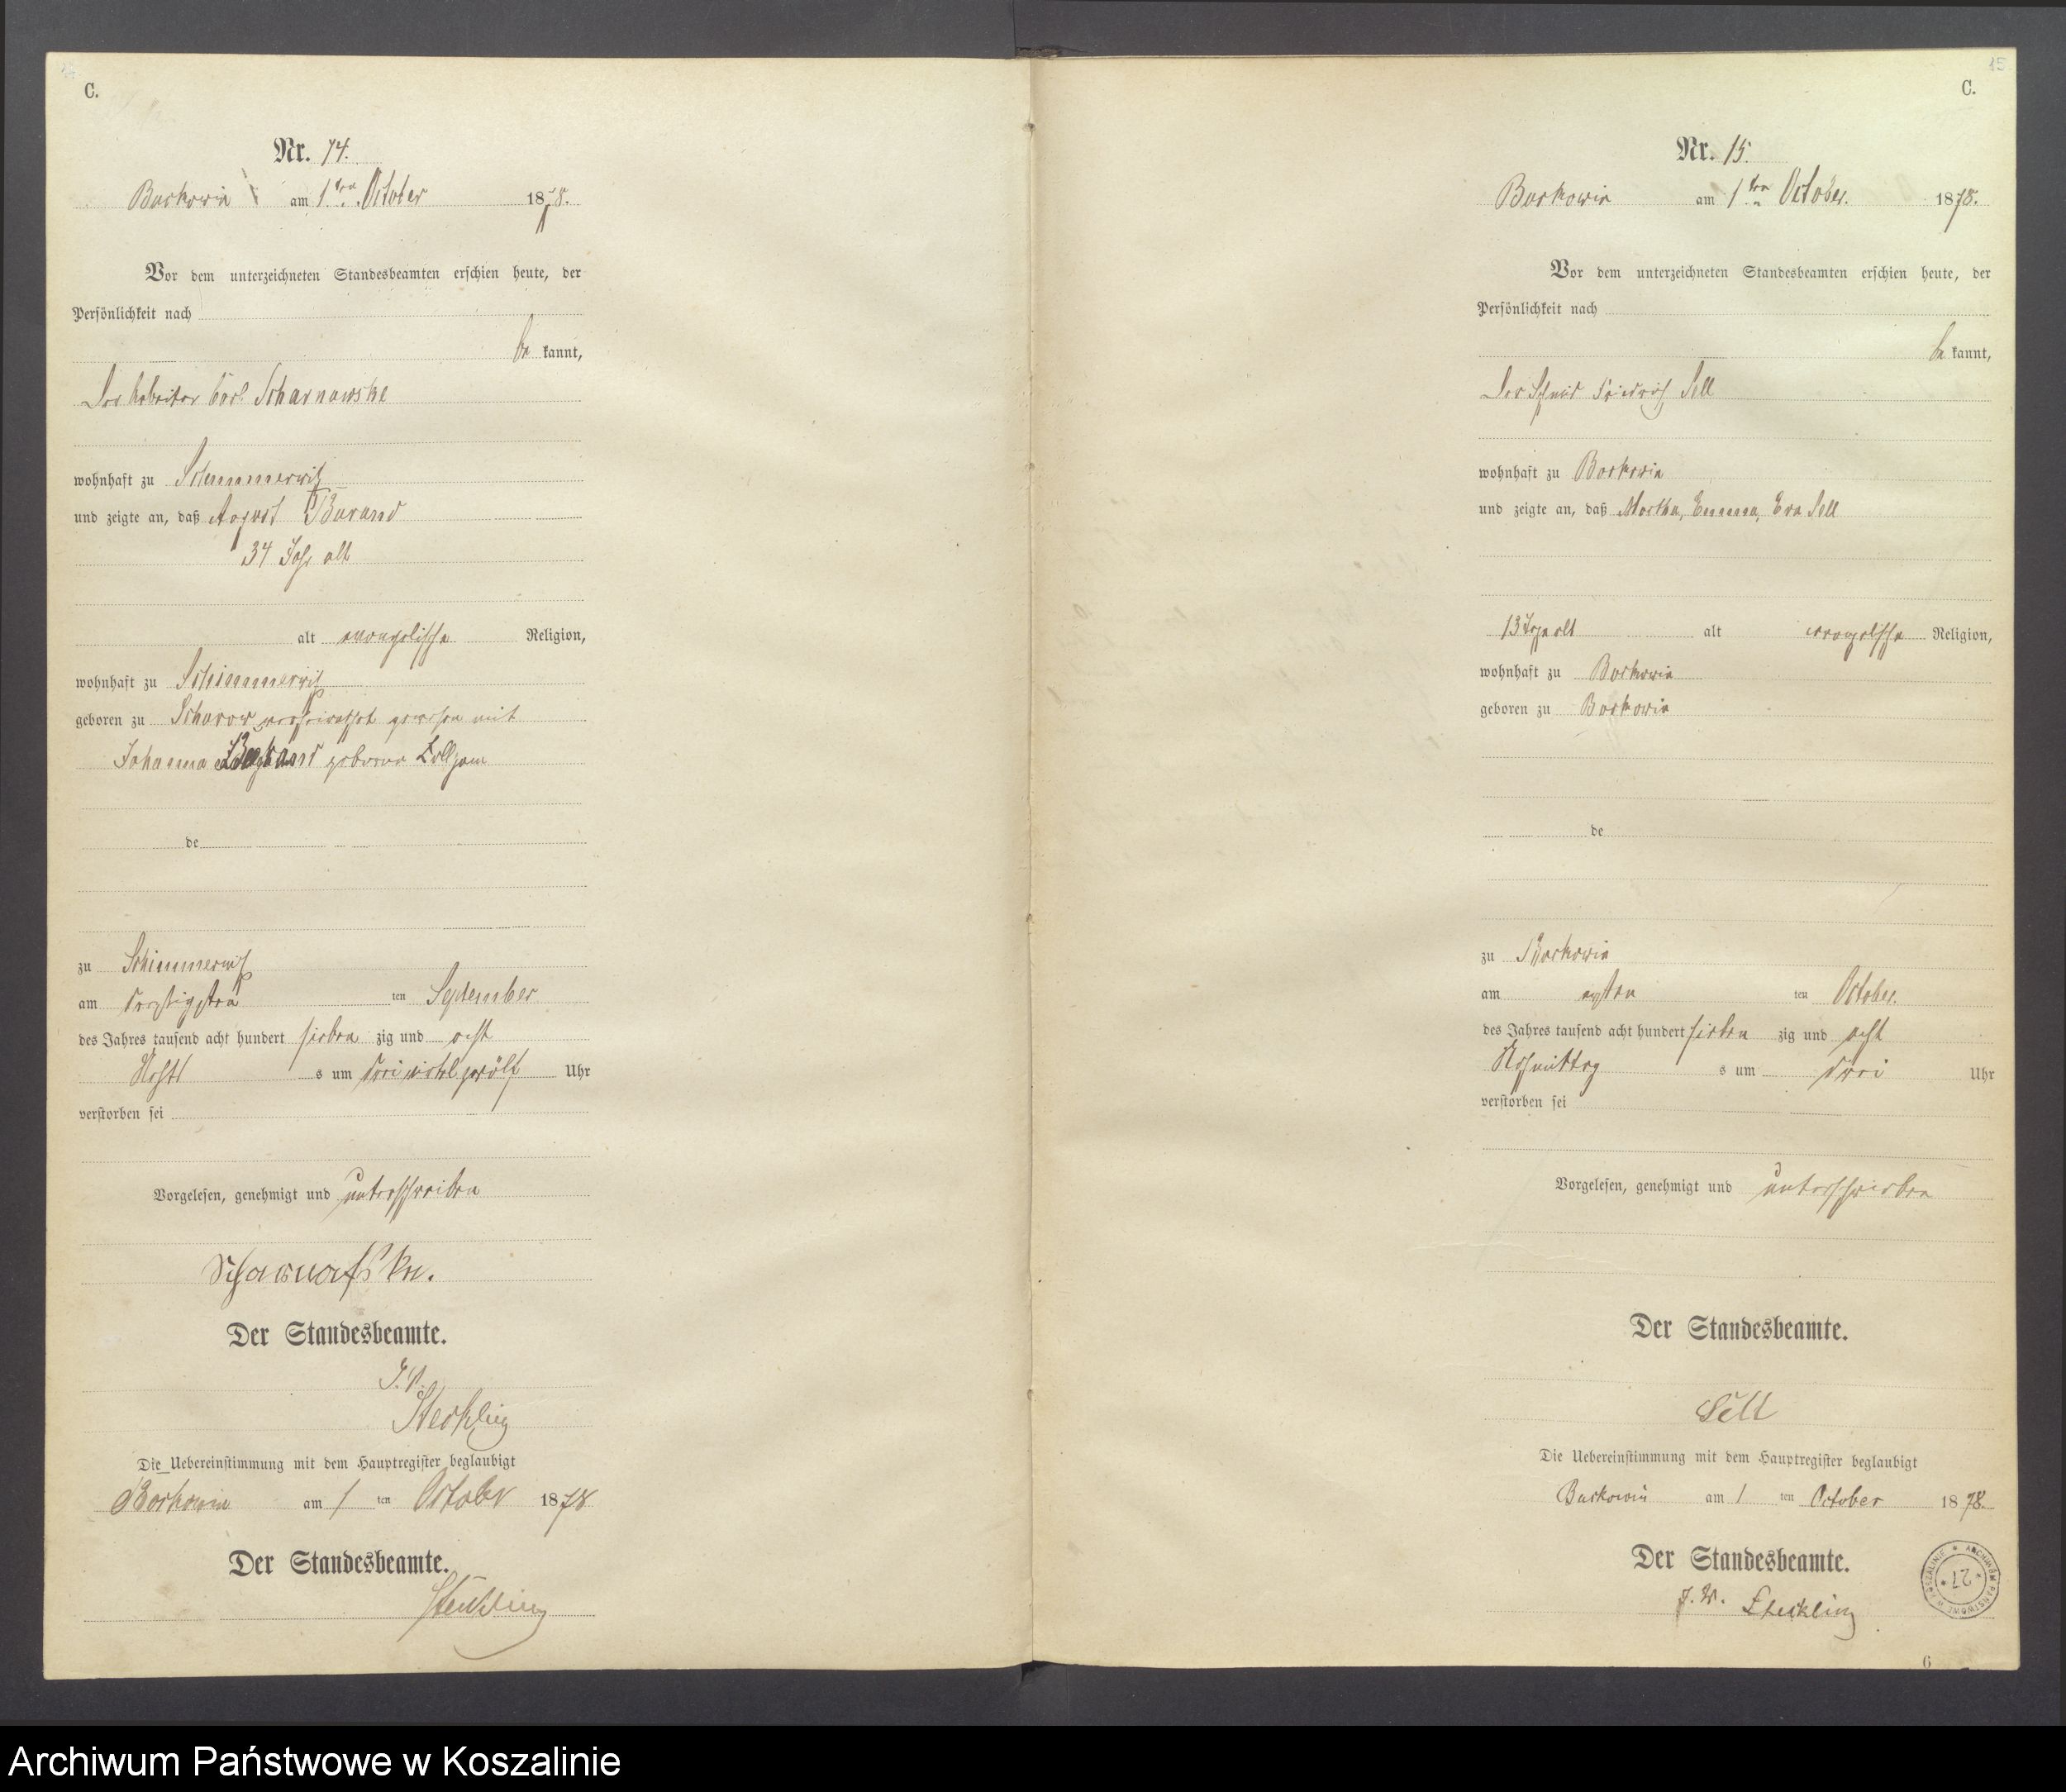 C.
Nr. 14.
Buckowin am 1ten October 1878.
Vor dem unterzeichneten Standesbeamten erschien heute, der
Persönlichkeit nach
be kannt,
Der Arbeiter Carl Scharnowske
wohnhaft zu Schimmerwitz
und zeigte an, daß August Burand
34 Jahr alt
alt evangelische Religion,
wohnhaft zu Schimmerwitz
geboren zu Scharow verheirathet gewesen mit
Johanna geborne
de
zu Schimmerwitz
am dreizigsten ten September
des Jahres tausend acht hundert sieben zig und acht
Nachts um drei Uhr
verstorben sei
Vorgelesen, genehmigt und unterschreiben
Der Standesbeamte.
Steckling
Die Uebereinstimmung mit dem Hauptregister beglaubigt
Buckowin am 1 ten October 1878
Der Standesbeamte.
Steckling
15
C.
Nr. 15.
Buckowin am 1ten October. 1878.
Vor dem unterzeichneten Standesbeamten erschien heute, der
Persönlichkeit nach
be kannt,
Der Schmid Friedrich Sell
wohnhaft zu Buckowin
und zeigte an, daß Martha, Emma, Eva Sell
13 Tage alt alt evangelische Religion,
wohnhaft zu Buckowin
geboren zu Buckowin
de
zu Buckowin
am ersten ten October.
des Jahres tausend acht hundert sieben zig und acht
Nachmittag s um drei Uhr
verstorben sei
Vorgelesen, genehmigt und unterschrieben
Der Standesbeamte.
Sell
Die Uebereinstimmung mit dem Hauptregister beglaubigt
Buckowin am 1 ten October 1878.
Der Standesbeamte.
Steckling
ARCHIWUM PAŃSTWOWE W KOSZALINIE
27
6
Archiwum Państwowe w Koszalinie